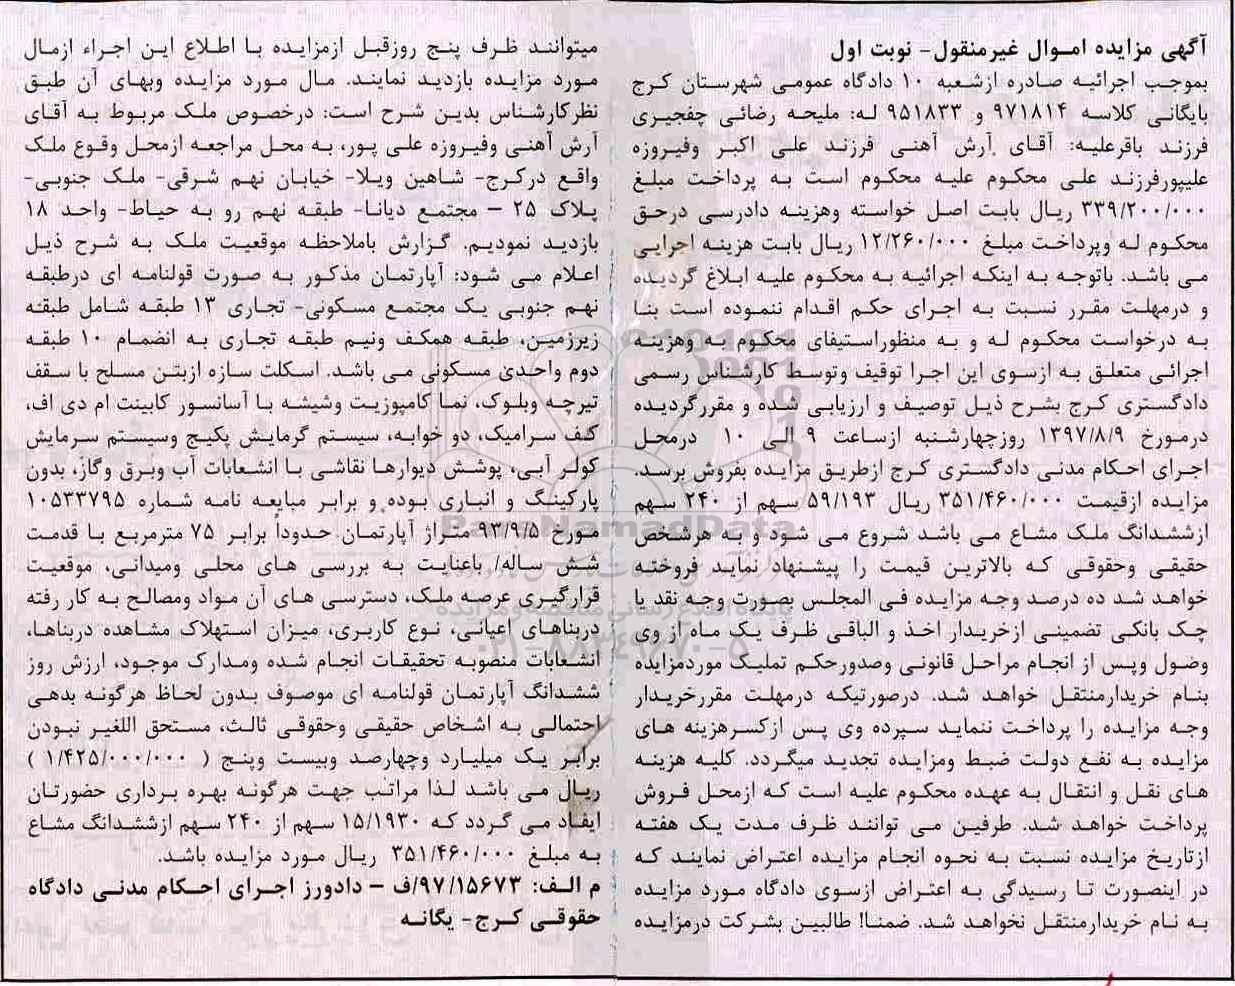 آگهی مزایده اموال غیرمنقول- نوبت اول
بموجب اجرائیه صادره ازشعبه ۱۰ دادگاه عمومی شهرستان کرج
بایگانی کلاسه ۹۷۱۸۱۴ و ۹۵۱۸۳۳ له: ملیحه رضائی چفجیری
فرزند باقرعلیه: آقای آرش آهنی فرزند علی اکبر وفیروزه
علیپورفرزند علی محکوم علیه محکوم است به پرداخت مبلغ
۳۳۹/۲۰۰/۰۰۰ ریال بابت اصل خواسته وهزینه دادرسی درحق
محکوم له وپرداخت مبلغ ۱۲/۲۶۰/۰۰۰ ریال بابت هزینه اجرایی
می باشد. باتوجه به اینکه اجرائیه به محکوم علیه ابلاغ گردیده
و درمهلت مقرر نسبت به اجرای حکم اقدام ننموده است بنا
به درخواست محکوم له و به منظوراستیفای محکوم به وهزینه
اجرائی متعلق به ازسوی این اجرا توقیف وتوسط کارشناس رسمی
دادگستری کرج بشرح ذیل توصیف و ارزیابی شده و مقررگردیده
درمورخ ۱۳۹۷/۸/۹ روزچهارشنبه ازساعت ۹ الی ۱۰ درمحل
اجرای احکام مدنی دادگستری کرج ازطریق مزایده بفروش برسد.
مزایده ازقیمت ۳۵۱/۴۶۰/۰۰۰ ریال ۵۹/۱۹۳ سهم از ۲۴۰ سهم
ازششدانگ ملک مشاع می باشد شروع می شود و به هرشخص
حقیقی وحقوقی که بالاترین قیمت را پیشنهاد نماید فروخته
خواهد شد ده درصد وجه مزایده فی المجلس بصورت وجه نقد یا
چک بانکی تضمینی ازخریدار اخذ و الباقی ظرف یک ماه از وی
وصول وپس از انجام مراحل قانونی وصدورحکم تملیک موردمزایده
بنام خریدارمنتقل خواهد شد. درصورتیکه درمهلت مقررخریدار
وجه مزایده را پرداخت ننماید سپرده وی پس ازکسرهزینه های
مزایده به نفع دولت ضبط ومزایده تجدید میگردد. کلیه هزینه
های نقل و انتقال به عهده محکوم علیه است که ازمحل فروش
پرداخت خواهد شد. طرفین می توانند ظرف مدت یک هفته
ازتاریخ مزایده نسبت به نحوه انجام مزایده اعتراض نمایند که
در اینصورت تا رسیدگی به اعتراض ازسوی دادگاه مورد مزایده
به نام خریدارمنتقل نخواهد شد. ضمنا! طالبین بشرکت درمزایده
میتوانند ظرف پنج روزقبل ازمزایده با اطلاع این اجراء ازمال
مورد مزایده بازدید نمایند. مال مورد مزایده وبهای آن طبق
نظرکارشناس بدین شرح است: درخصوص ملک مربوط به آقای
آرش آهنی وفیروزه علی پور، به محل مراجعه ازمحل وقوع ملک
واقع درکرج- شاهین ویلا- خیابان نهم شرقی- ملک جنوبی-
پلاک ۲۵ – مجتمع دیانا- طبقه نهم رو به حیاط- واحد ۱۸
بازدید نمودیم. گزارش باملاحظه موقعیت ملک به شرح ذیل
اعلام می شود: آپارتمان مذکور به صورت قولنامه ای درطبقه
نهم جنوبی یک مجتمع مسکونی- تجاری ۱۳ طبقه شامل طبقه
زیرزمین، طبقه همکف ونیم طبقه تجاری به انضمام ۱۰ طبقه
دوم واحدی مسکونی می باشد. اسکلت سازه ازبتن مسلح با سقف
تیرچه وبلوک، نما کامپوزیت وشیشه با آسانسور کابینت ام دی اف،
کف سرامیک، دو خوابه، سیستم گرمایش پکیج وسیستم سرمایش
کولر آبی، پوشش دیوارها نقاشی با انشعابات آب وبرق وگاز، بدون
پارکینگ و انباری بوده و برابر مبایعه نامه شماره ۱۰۵۳۳۷۹۵
مورخ ۹۳/۹/۵ متراژ آپارتمان حدوداً برابر ۷۵ مترمربع با قدمت
شش ساله/ باعنایت به بررسی های محلی ومیدانی، موقعیت
قرارگیری عرصه ملک، دسترسی های آن مواد ومصالح به کار رفته
دربناهای اعیانی، نوع کاربری، میزان استهلاک مشاهده دربناها،
انشعابات منصوبه تحقیقات انجام شده ومدارک موجود، ارزش روز
ششدانگ آپارتمان قولنامه ای موصوف بدون لحاظ هرگونه بدهی
احتمالی به اشخاص حقیقی وحقوقی ثالث، مستحق اللغیر نبودن
برابر یک میلیارد وچهارصد وبیست وپنج ( ۱/۴۲۵/۰۰۰/۰۰۰ )
ریال می باشد لذا مراتب جهت هرگونه بهره برداری حضورتان
ایفاد می گردد که ۱۵/۱۹۳۰ سهم از ۲۴۰ سهم ازششدانگ مشاع
به مبلغ ۳۵۱/۴۶۰/۰۰۰ ریال مورد مزایده باشد.
م الف: ۹۷/۱۵۶۷۳/ف – دادورز اجرای احکام مدنی دادگاه
حقوقی کرج- یگانه
ParsNamadData
پایگاه اطلاع رسانی مناقصه و مزایده
۰۲۱-۸۸۳۴۹۶۷۰-۵